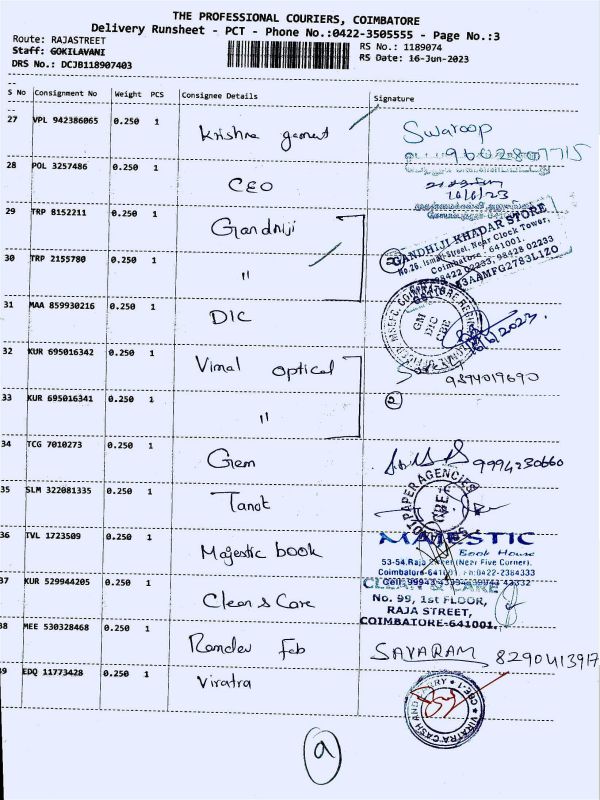 THE PROFESSIONAL COURIERS, COIMBATORE
Delivery Runsheet - PCT - Phone No.:0422-3505555 - Page No.:3
Route: RAJASTREET
RS No.: 1189074
Staff: GOKILAVANI
RS Date: 16-Jun-2023
DRS No.: DCJB118907403
S No Consignment No Weight PCS Consignee Details Signature
27 VPL 942386065 0.250 1 Krishna garment Swaroop
9602807715
28 POL 3257486 0.250 1 CEO
16/6/23
29 TRP 8152211 0.250 1 Gandhiji
GANDHIJI KHADAR STORE
No.26, Ismail Street, Near Clock Tower,
Coimbatore - 641001.
98422 02233, 98428 02233
33AAMFG2783L1ZO
30 TRP 2155780 0.250 1 "
31 MAA 859930216 0.250 1 DIC
GM
DIC
CBE
16/6/2023.
32 KUR 695016342 0.250 1 Vimal optical
9894019690
33 KUR 695016341 0.250 1 "
34 TCG 7010273 0.250 1 Gem 9994230660
35 SLM 322081335 0.250 1 Tanot
PAPER AGENCIES
36 TVL 1723509 0.250 1 Majestic book
MAJESTIC
Book House
53-54, Raja Street (Near Five Corner),
Coimbatore-641001. Ph:0422-2384333
37 KUR 529944205 0.250 1 Clean & Care
CLEAN & CARE
No. 99, 1st FLOOR,
RAJA STREET,
COIMBATORE-641001.
38 MEE 530328468 0.250 1 Ramdev Feb SAVARAM 8290413917
39 EDQ 11773428 0.250 1 Viratra
VIRATRA CASH AND CARRY
CBE-1
a